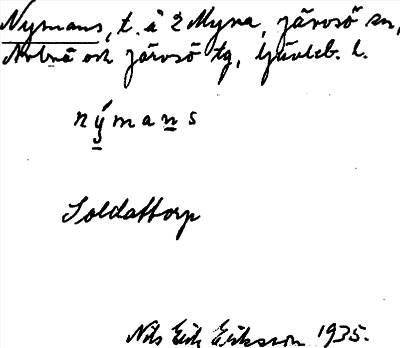 Nymans, t. å 2 Myra, Järvsö sn,
Arbrå och Järvsö tg, Gävleb. l.
nýmans
Soldattorp
Nils Erik Eriksson 1935.